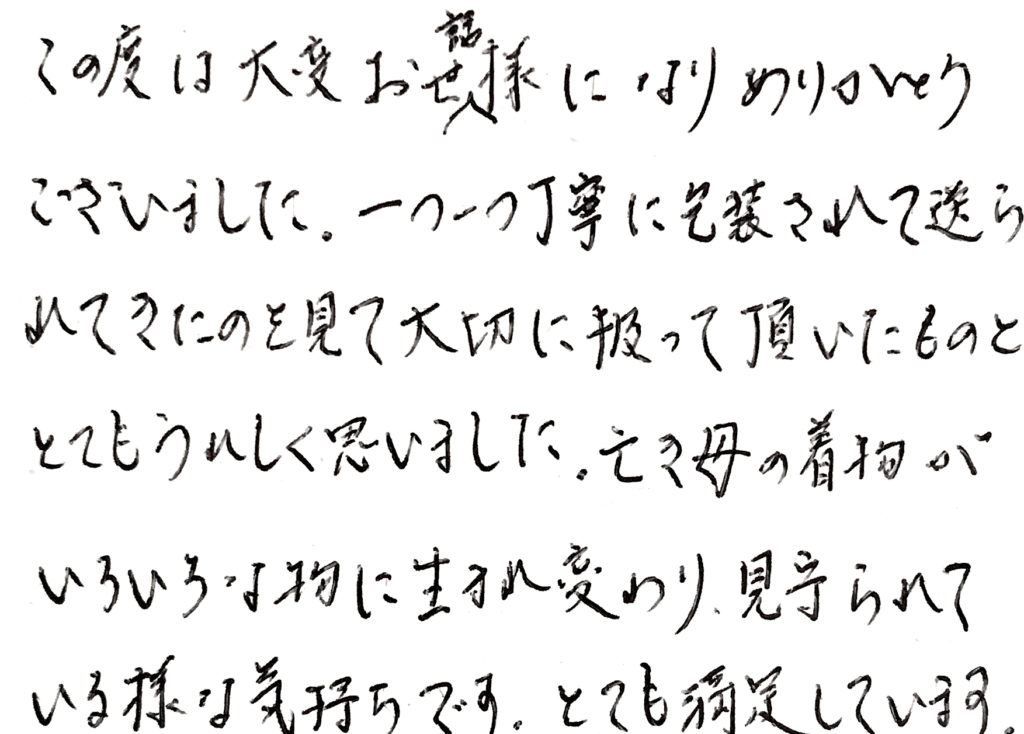 この度は大変お世話様になりありがとう
ございました。一つ一つ丁寧に包装されて送ら
れてきたのを見て大切に扱って頂いたものと
とてもうれしく思いました。亡き母の着物が
いろいろな物に生まれ変わり、見守られて
いる様な気持ちです。とても満足しています。